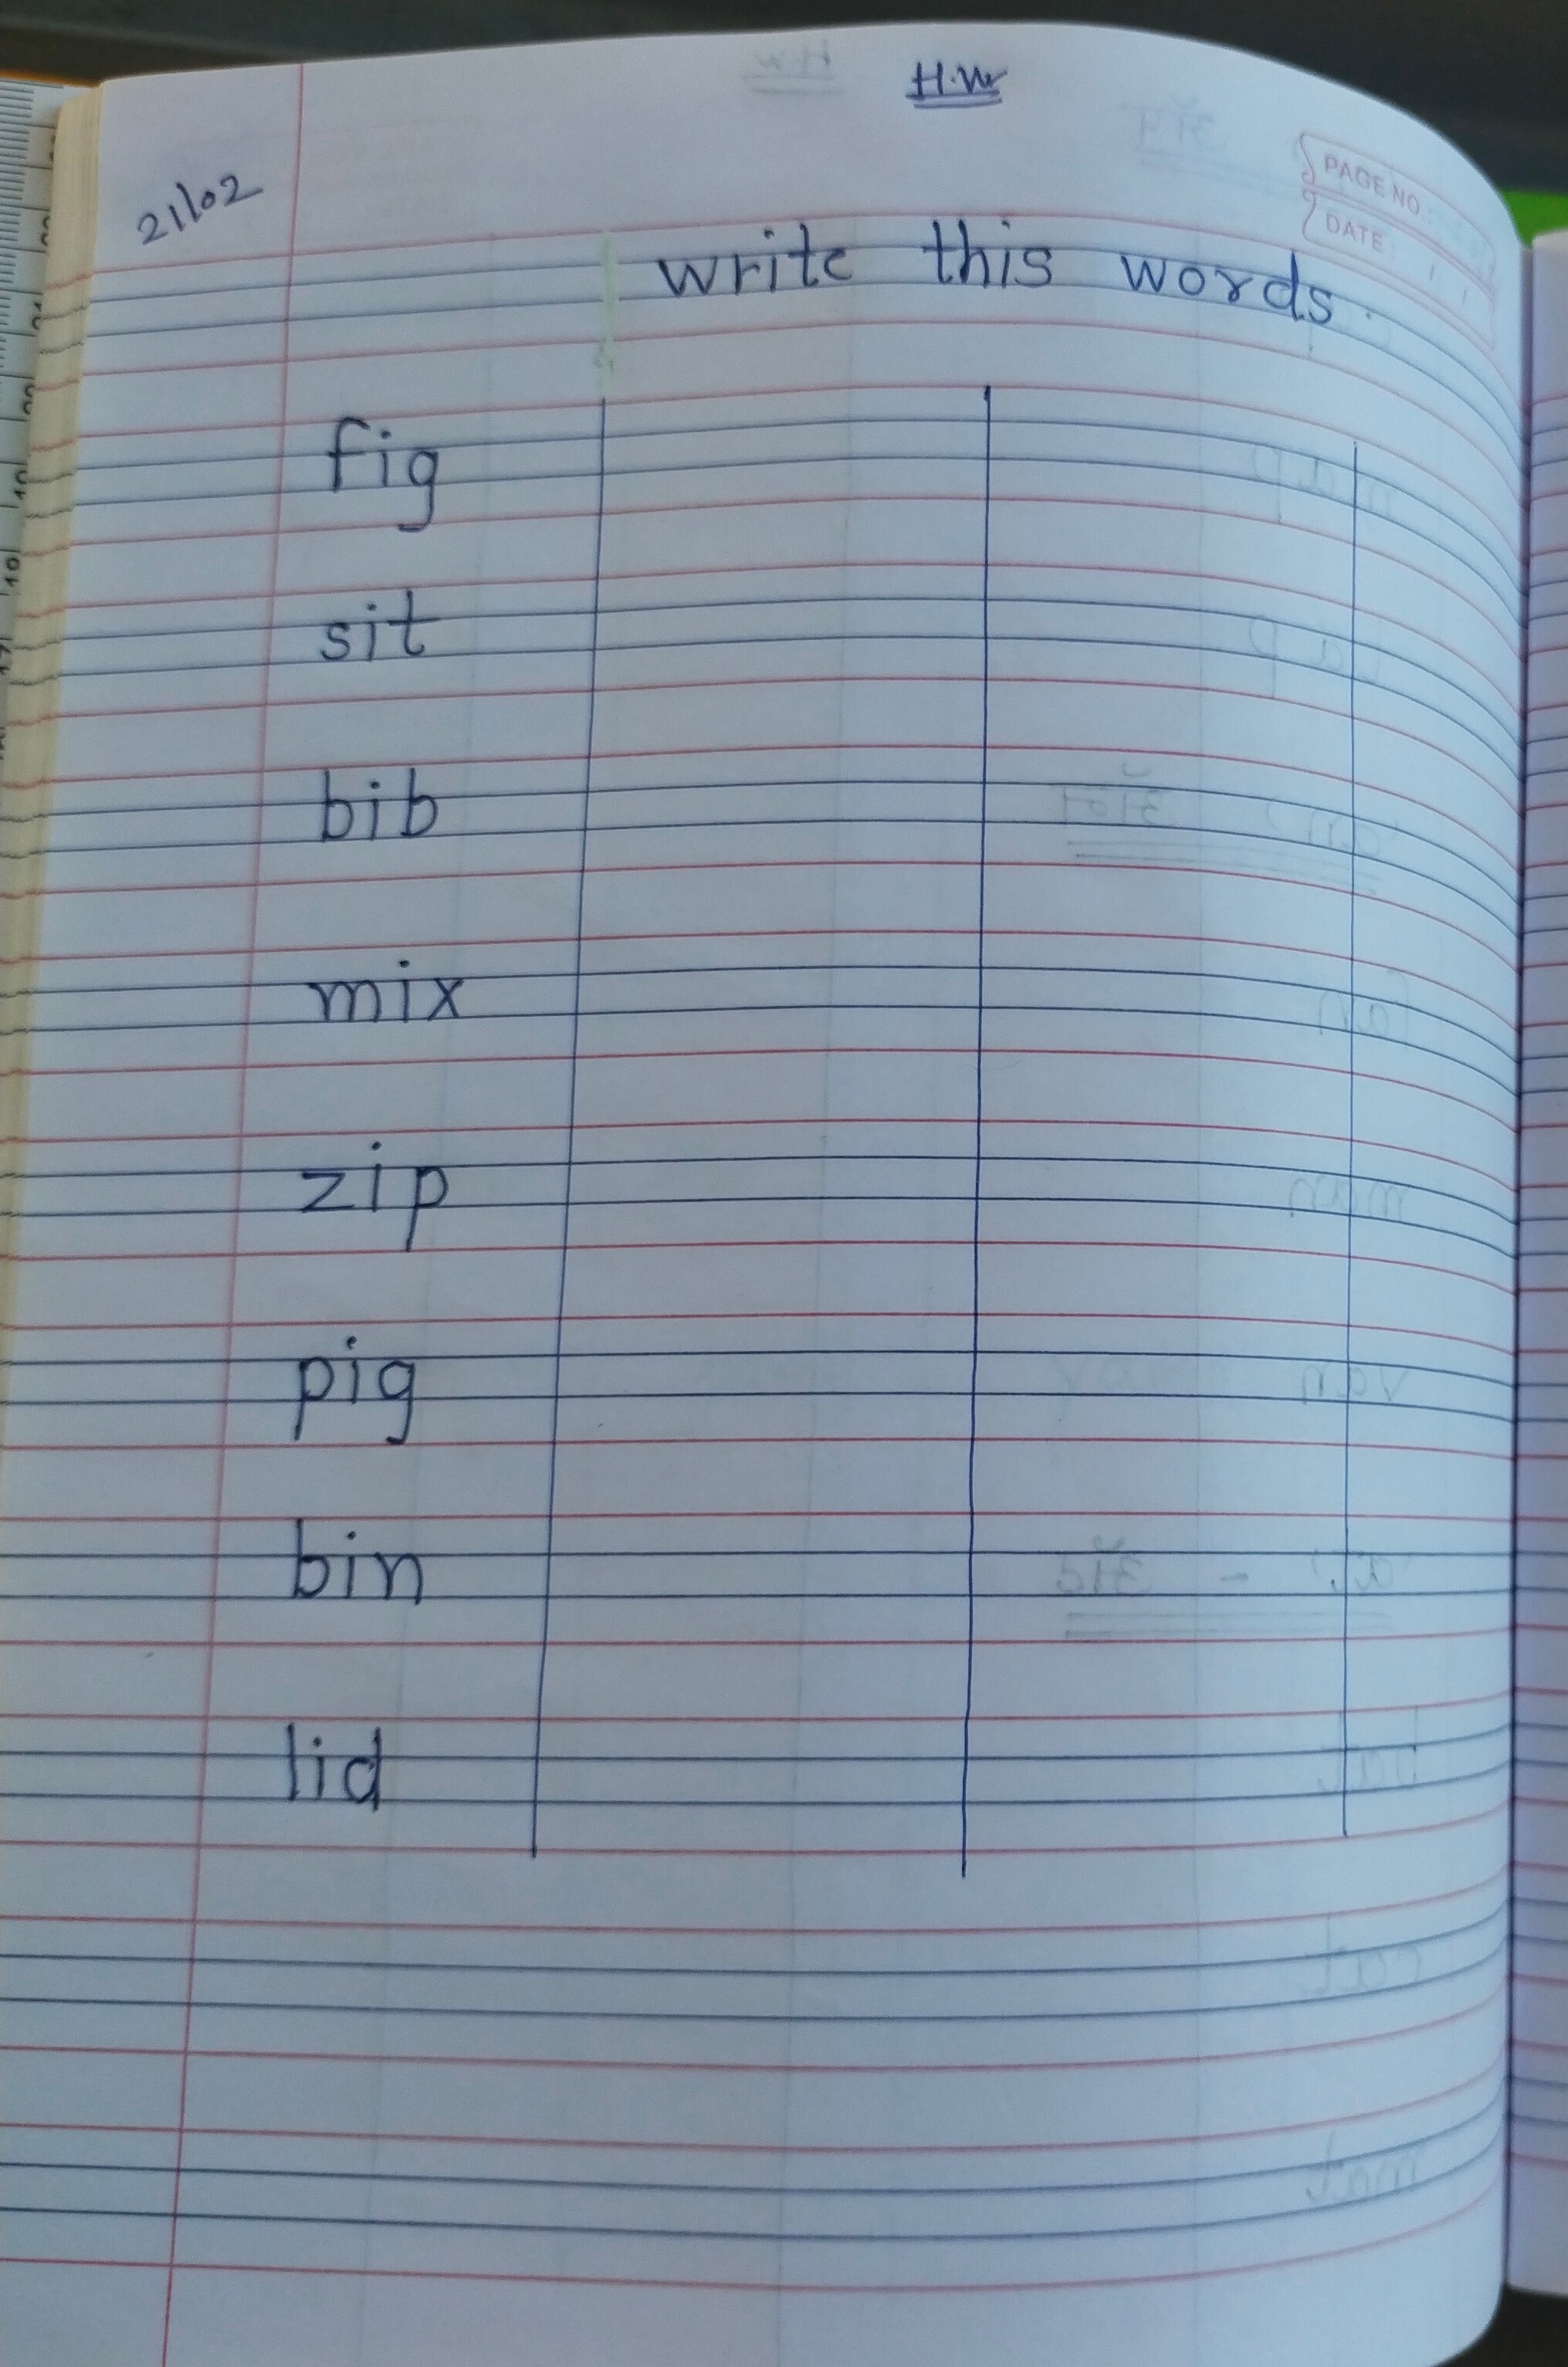 H.W
PAGE NO.:
DATE:
21/02
write this words.
fig
sit
bib
mix
zip
pig
bin
lid